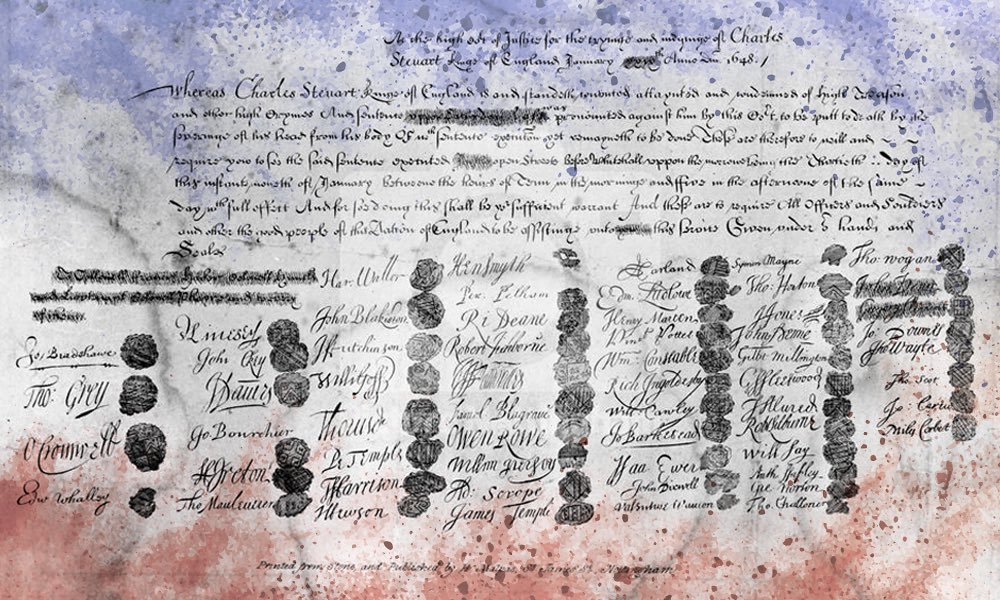 At the high Cort of Justice for the tryinge and iudginge of Charles
Steuart Kinge of England January Anno Dni 1648
Whereas Charles Steuart Kinge of England is and standeth convicted attaynted and condemned of High Treason
and other high Crymes And sentence was pronounced against him by this Cort to be putt to death by the
severinge of his head from his body Of wch sentence execucon yet remayneth to be done These are therefore to will and
require you to see the said sentence executed In the open Streete before Whitehall uppon the morrowe being the Thirtieth day of
this instante moneth of January betweene the houres of Tenn in the morninge and ffive in the afternoone of the same
day wth full effect And for soe doing this shall be yor sufficient warrant And these are to require All Officers and Souldiers
and other the good people of this Nation of England to be assistinge unto you in this service Given under or hands and
Seales
Jo Bradshawe
Tho: Grey
O Cromwell
Edw Whalley
M Livesey
John
J Danvers
Jo Bourchier
H Ireton
Tho Mauleverer
Har: Waller
John Blakiston
J Hutchinson
Willi Goff
Tho Pride
Pe Temple
T Harrison
J Hewson
Hen Smyth
Per. Pelham
Ri Deane
Robert Tichborne
Daniel Blagrave
Owen Rowe
Ad: Scrope
James Temple
A Garland
Edm: Ludlowe
Henry Marten
Vint Potter
Wm Constable
Rich Ingoldesby
Will Cawley
Jo Barkestead
Isaa Ewer
John Dixwell
Valentine Wauton
Symon Mayne
Tho: Horton
J Jones
John
Gilbt Millington
G Fleetwood
J Alured
Rob Lilburne
Will Say
Anth Stapley
Gre Norton
Tho. Challoner
Tho: Wogan
Jo: Downes
Tho Wayte
Tho: Scot
Jo: Carew
Miles Corbet
Printed from Stone, and Published by St James's St. Nottingham